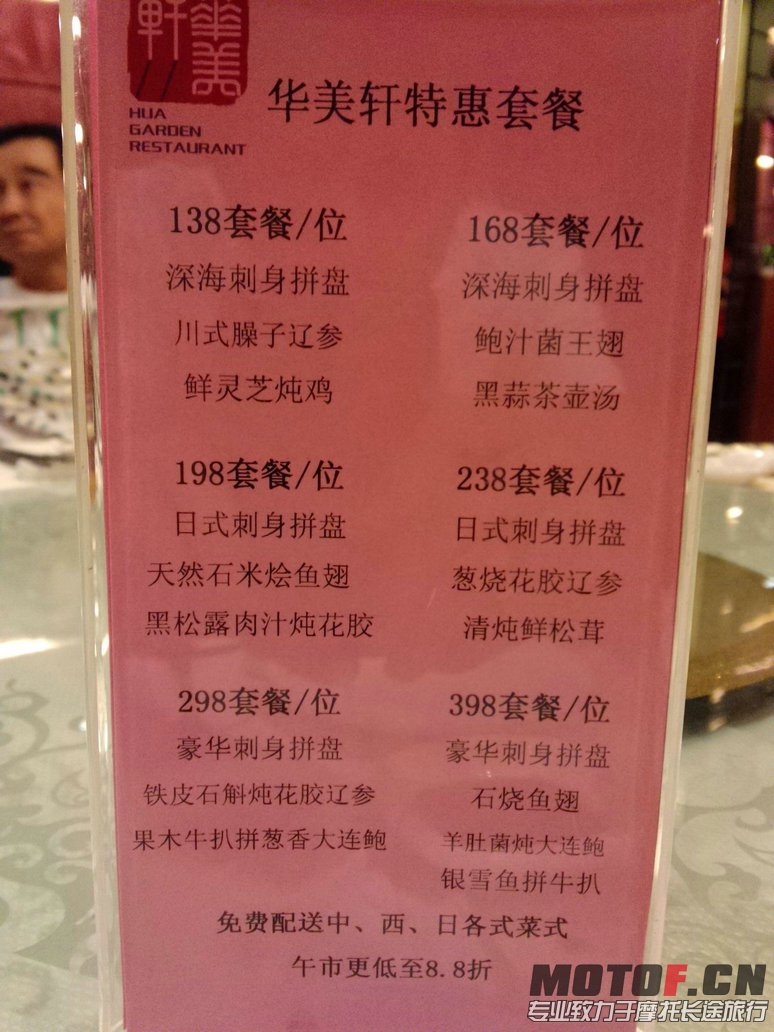 軒華美
HUA
GARDEN
RESTAURANT
华美轩特惠套餐
138套餐/位
深海刺身拼盘
川式臊子辽参
鲜灵芝炖鸡
168套餐/位
深海刺身拼盘
鲍汁菌王翅
黑蒜茶壶汤
198套餐/位
日式刺身拼盘
天然石米烩鱼翅
黑松露肉汁炖花胶
238套餐/位
日式刺身拼盘
葱烧花胶辽参
清炖鲜松茸
298套餐/位
豪华刺身拼盘
铁皮石斛炖花胶辽参
果木牛扒拼葱香大连鲍
398套餐/位
豪华刺身拼盘
石烧鱼翅
羊肚菌炖大连鲍
银雪鱼拼牛扒
免费配送中、西、日各式菜式
午市更低至8.8折
MOTOF.CN
专业致力于摩托长途旅行